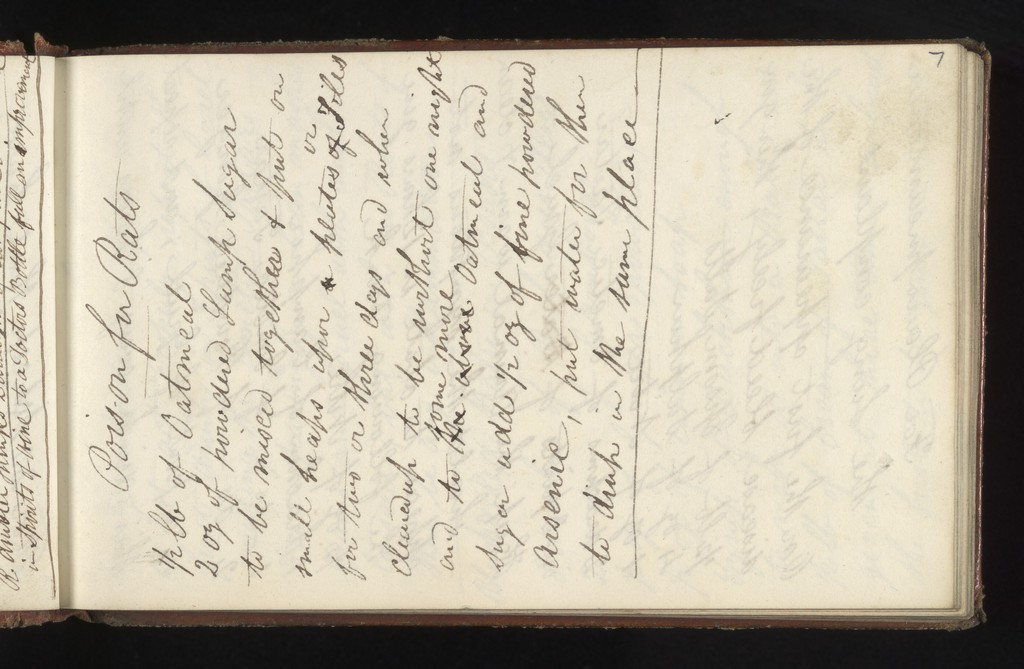 in Spirits of Wine to a Doctors Bottle full an improvement
7
Poison for Rats
1/2 lb of Oatmeal
2 oz of powdered Lump Sugar
to be mixed together & put on
small heaps upon plates or Tiles
for two or three days and when
cleared up to be without one night
and to the above some more Oatmeal and
Sugar add 1/2 oz of fine powdered
Arsenic, put water for them
to drink in the same place